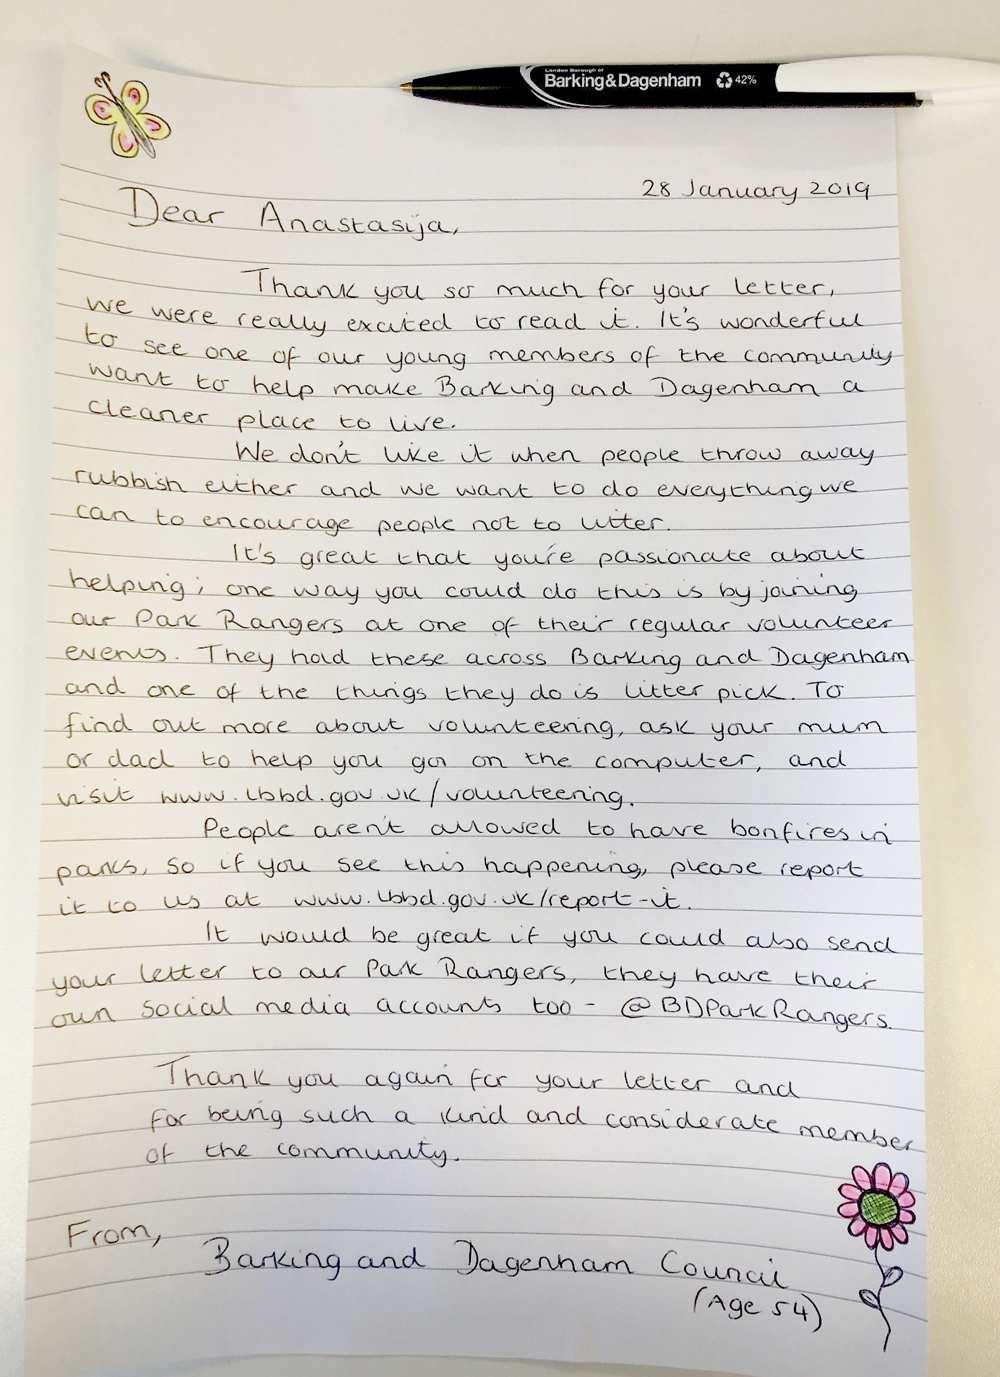 London Borough of
Barking&Dagenham 42%
28 January 2019
Dear Anastasija,
Thank you so much for your letter,
we were really excited to read it. It's wonderful
to see one of our young members of the community
want to help make Barking and Dagenham a
cleaner place to live.
We don't like it when people throw away
rubbish either and we want to do everything we
can to encourage people not to litter.
It's great that you're passionate about
helping; one way you could do this is by joining
our Park Rangers at one of their regular volunteer
events. They hold these across Barking and Dagenham
and one of the things they do is litter pick. To
find out more about volunteering, ask your mum
or dad to help you go on the computer, and
visit www.lbbd.gov.uk/volunteering.
People aren't allowed to have bonfires in
parks, so if you see this happening, please report
it to us at www.lbbd.gov.uk/report-it.
It would be great if you could also send
your letter to our Park Rangers, they have their
own social media accounts too - @BDParkRangers.
Thank you again for your letter and
for being such a kind and considerate member
of the community.
From,
Barking and Dagenham Council
(Age 54)